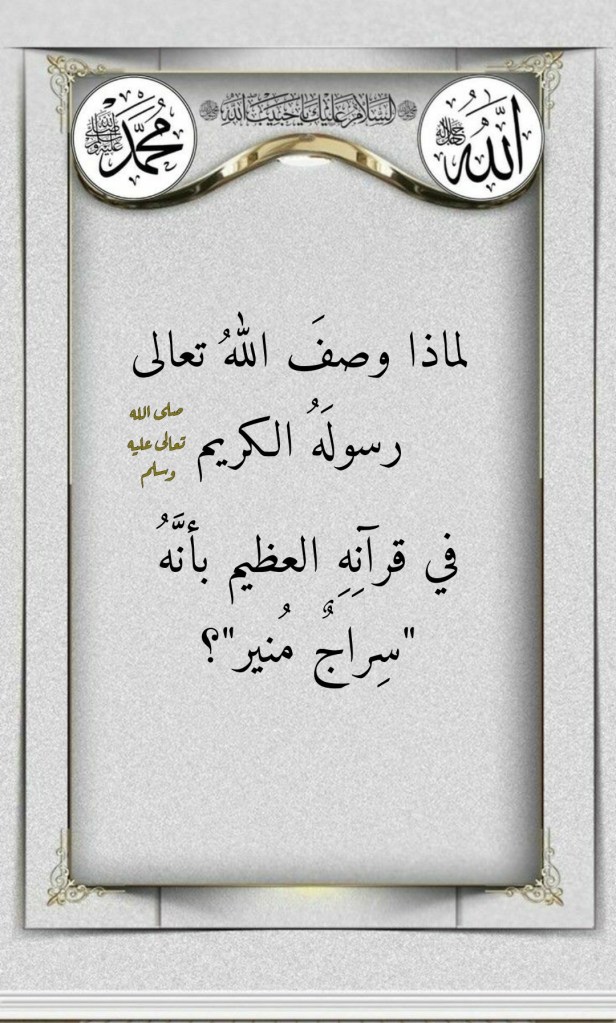 السلام عليك يا حبيب الله
الله جل جلاله
محمد صلى الله عليه وسلم
لماذا وصفَ اللهُ تعالى
رسولَهُ الكريم صلى الله تعالى عليه وسلم
في قرآنِهِ العظيم بأنَّهُ
"سِراجٌ مُنير"؟